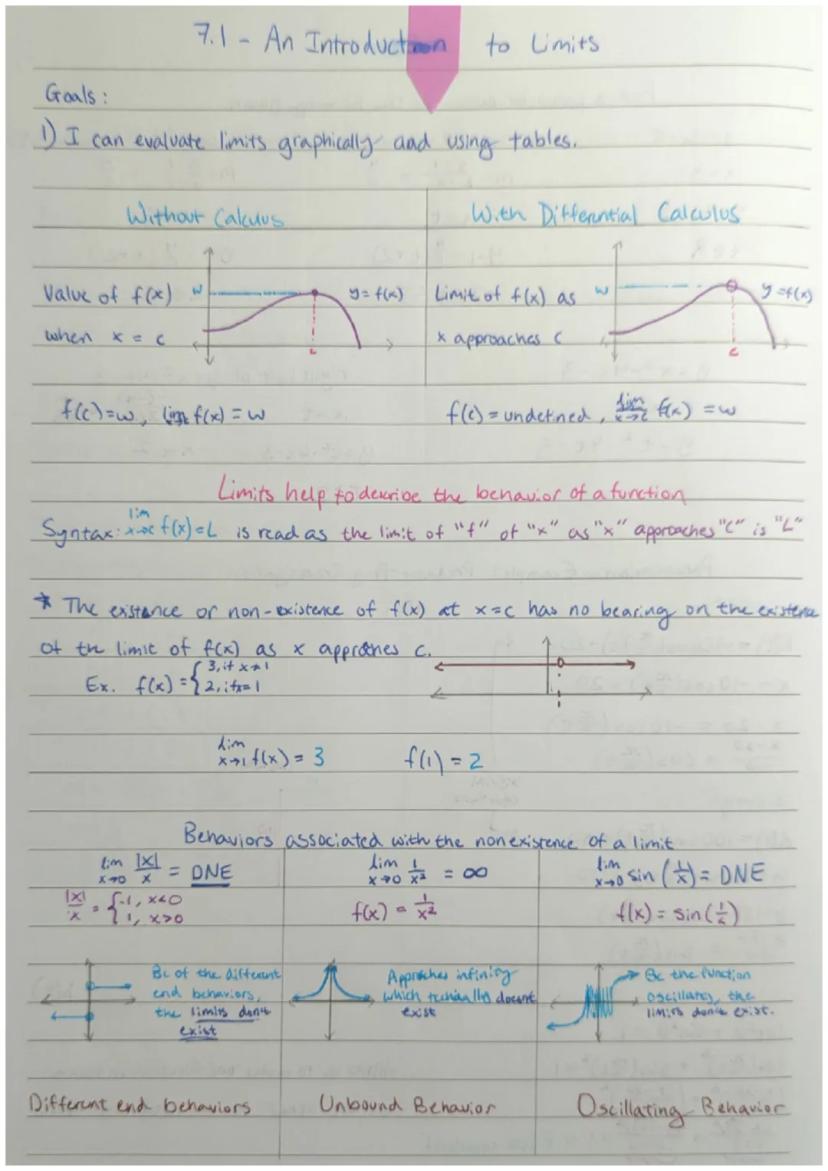 7.1 - An Introduction to Limits
Goals:
1) I can evaluate limits graphically and using tables.
Without Calculus
With Differential Calculus
Value of f(x)
when x = c
w
y = f(x)
c
Limit of f(x) as
x approaches c
w
y = f(x)
c
f(c)=w, lim x→c f(x) = w
f(c) = undefined, lim x→c f(x) = w
Limits help to describe the behavior of a function
Syntax: lim x→c f(x)=L is read as the limit of "f" of "x" as "x" approaches "c" is "L"
* The existance or non-existence of f(x) at x=c has no bearing on the existence
of the limit of f(x) as x approches c.
Ex. f(x) = { 3, if x≠1
2, if x=1
lim x→1 f(x) = 3 f(1) = 2
Behaviors associated with the nonexistence of a limit
lim x→0 |x|/x = DNE
|x|/x = { -1, x<0
1, x>0
Bc of the different
end behaviors,
the limits don't
exist
Different end behaviors
lim x→0 1/x² = ∞
f(x) = 1/x²
Approches infinity
which techially doesnt
exist
Unbound Behavior
lim x→0 sin (1/x) = DNE
f(x) = sin(1/x)
Bc the function
oscillates, the
limits don't exist.
Oscillating Behavior